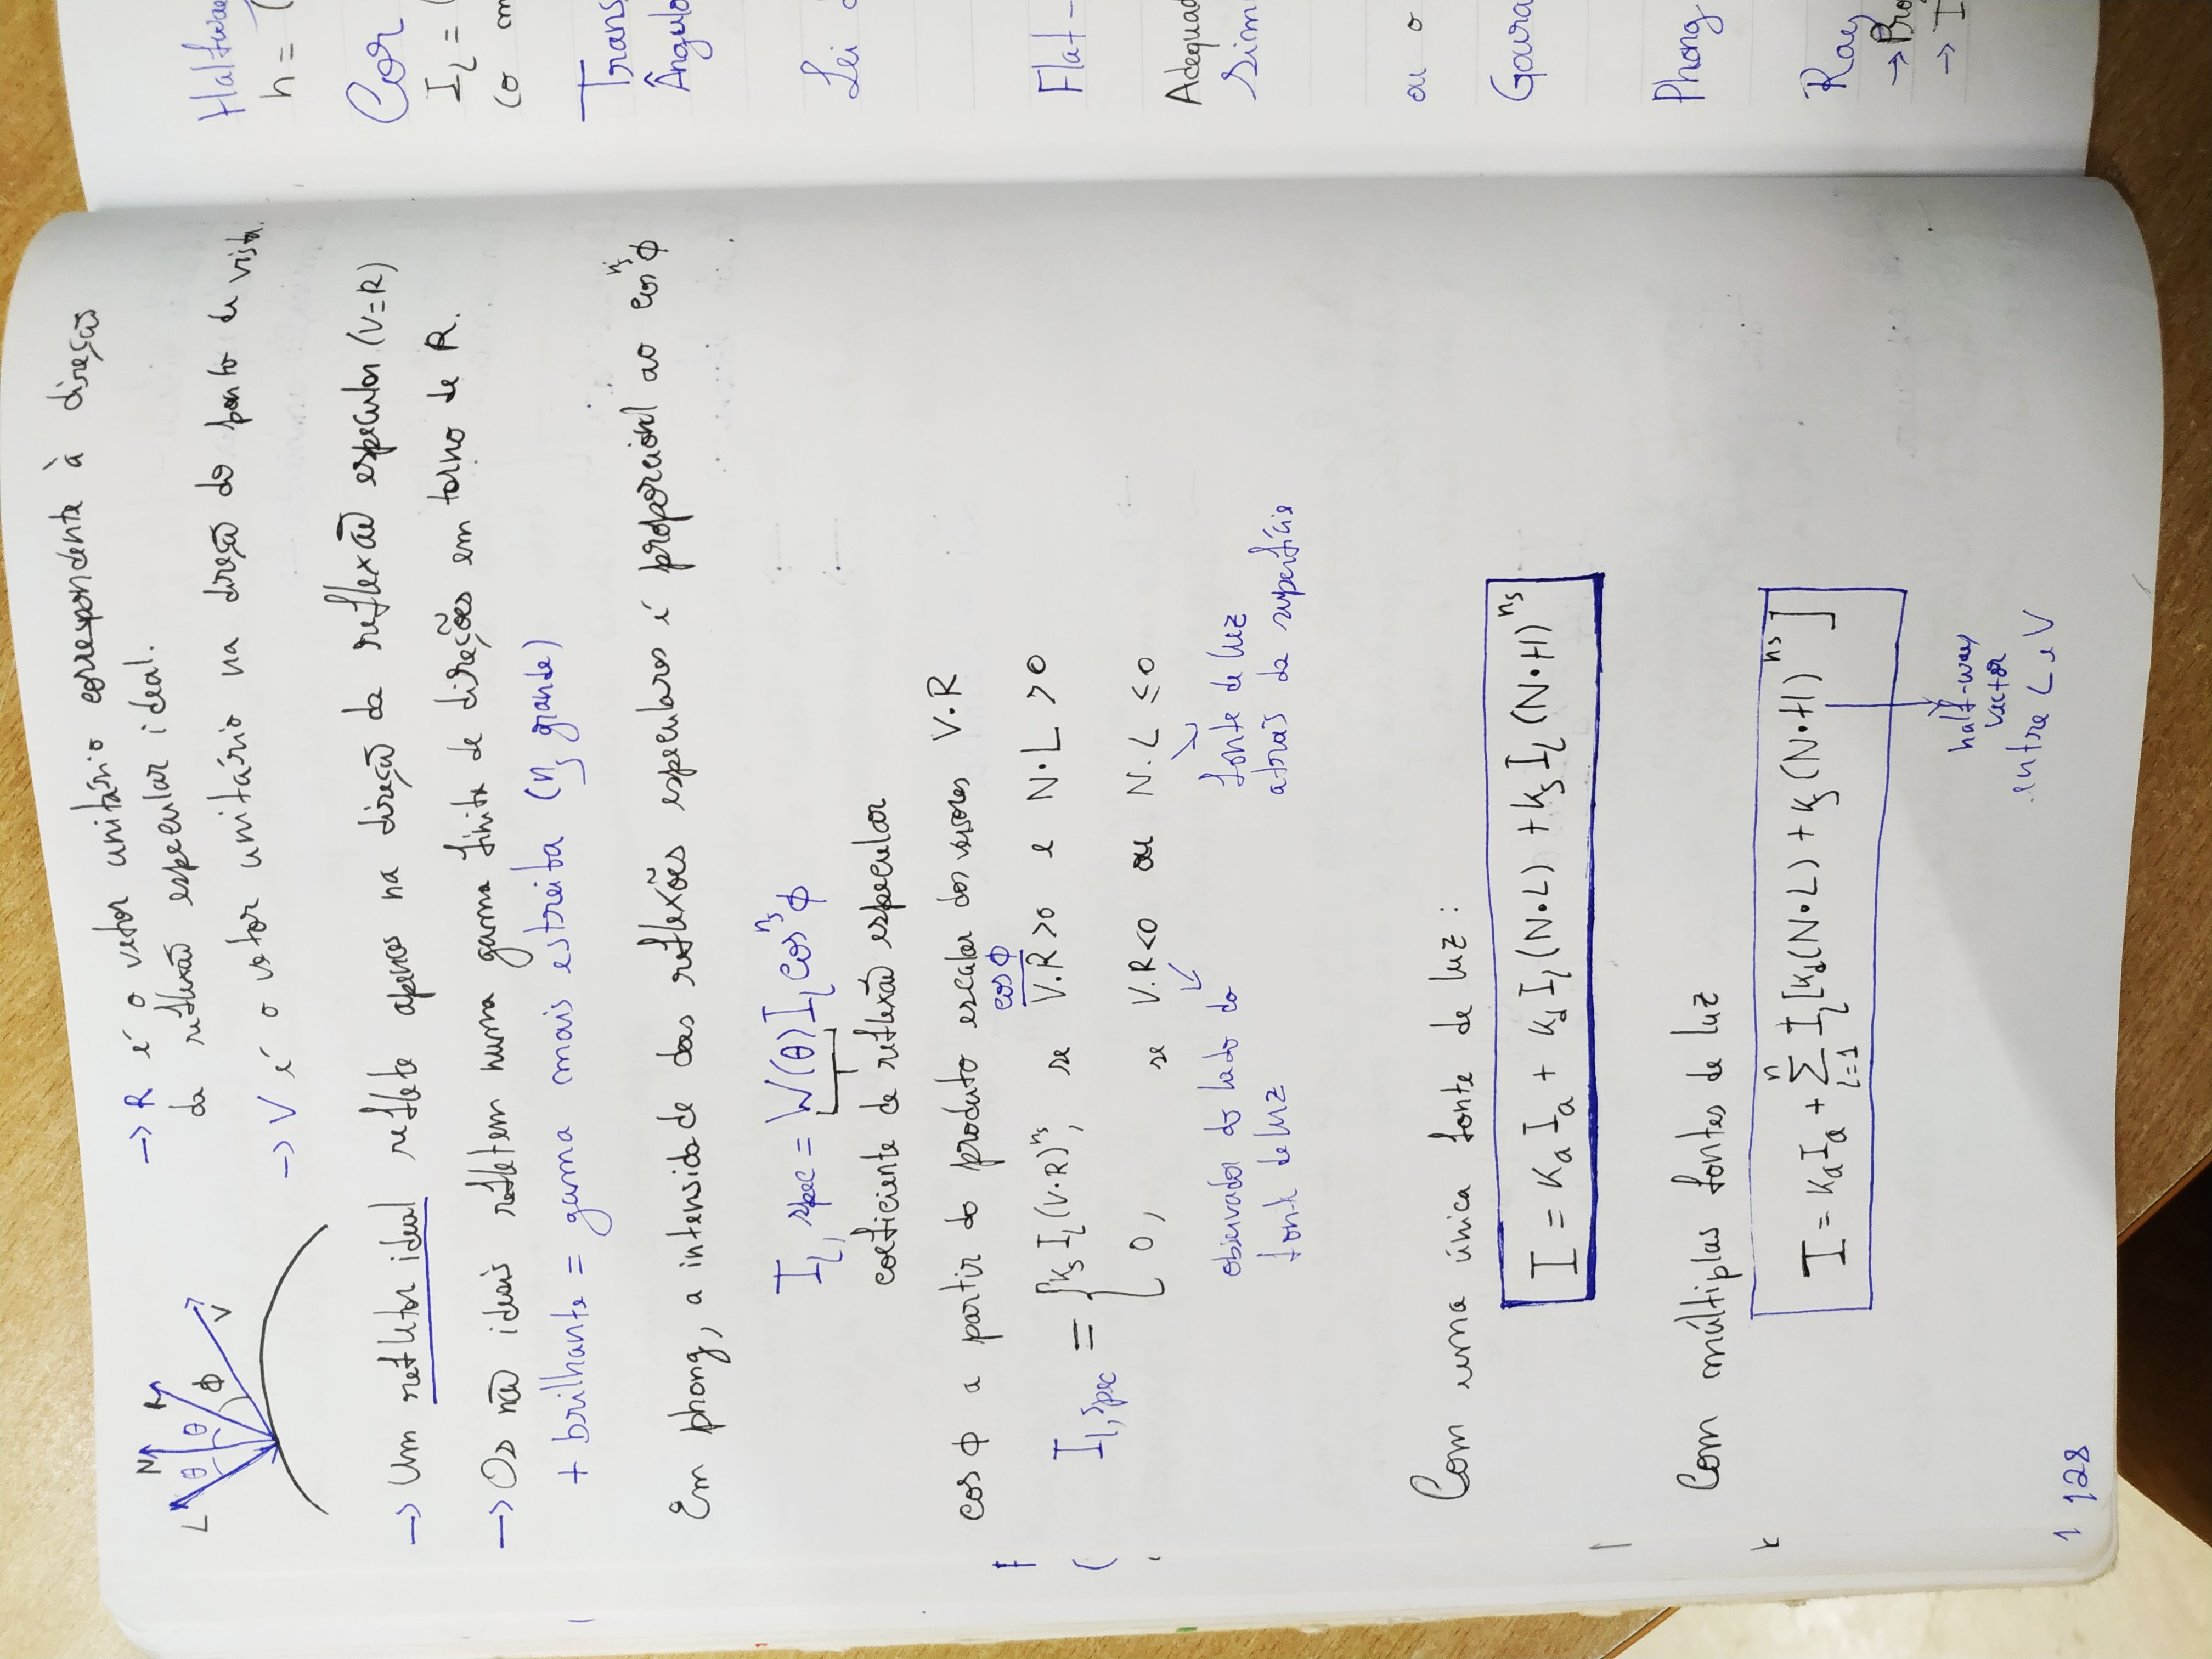 L N θ θ R ϕ V
→ R é o vetor unitário correspondente à direção
da reflexão especular ideal.
→ V é o vetor unitário na direção do ponto de vista.
→ Um refletor ideal reflete apenas na direção da reflexão especular (V=R)
→ Os não ideais refletem numa gama finita de direções em torno de R.
+ brilhante = gama mais estreita (n_s grande)
Em phong, a intensidade das reflexões especulares é proporcional ao cos^{n_s} ϕ
I_{l, spec} = W(θ) I_l cos^{n_s} ϕ
coeficiente de reflexão especular
cos ϕ a partir do produto escalar dos versores V·R
cos ϕ
I_{l, spec} = { k_s I_l (V·R)^{n_s}, se V.R >0 e N·L >0
0, se V.R<0 ou N.L ≤0
observador do lado da
fonte de luz
fonte de luz
atrás da superfície
Com uma única fonte de luz :
I = k_a I_a + k_d I_l (N·L) + k_s I_l (N·H)^{n_s}
Com múltiplas fontes de luz
I = k_a I_a + Σ_{l=1}^{n} I_l [k_d (N·L) + k_s (N·H)^{n_s}]
half-way
vector
entre L e V
1 128
Halfway
h = (
Cor
I_l = (
co
Trans
Ângulo
Lei
Flat -
Adequad
Sim
ou o
Goura
Phong
Ray
→ Pro
→ I